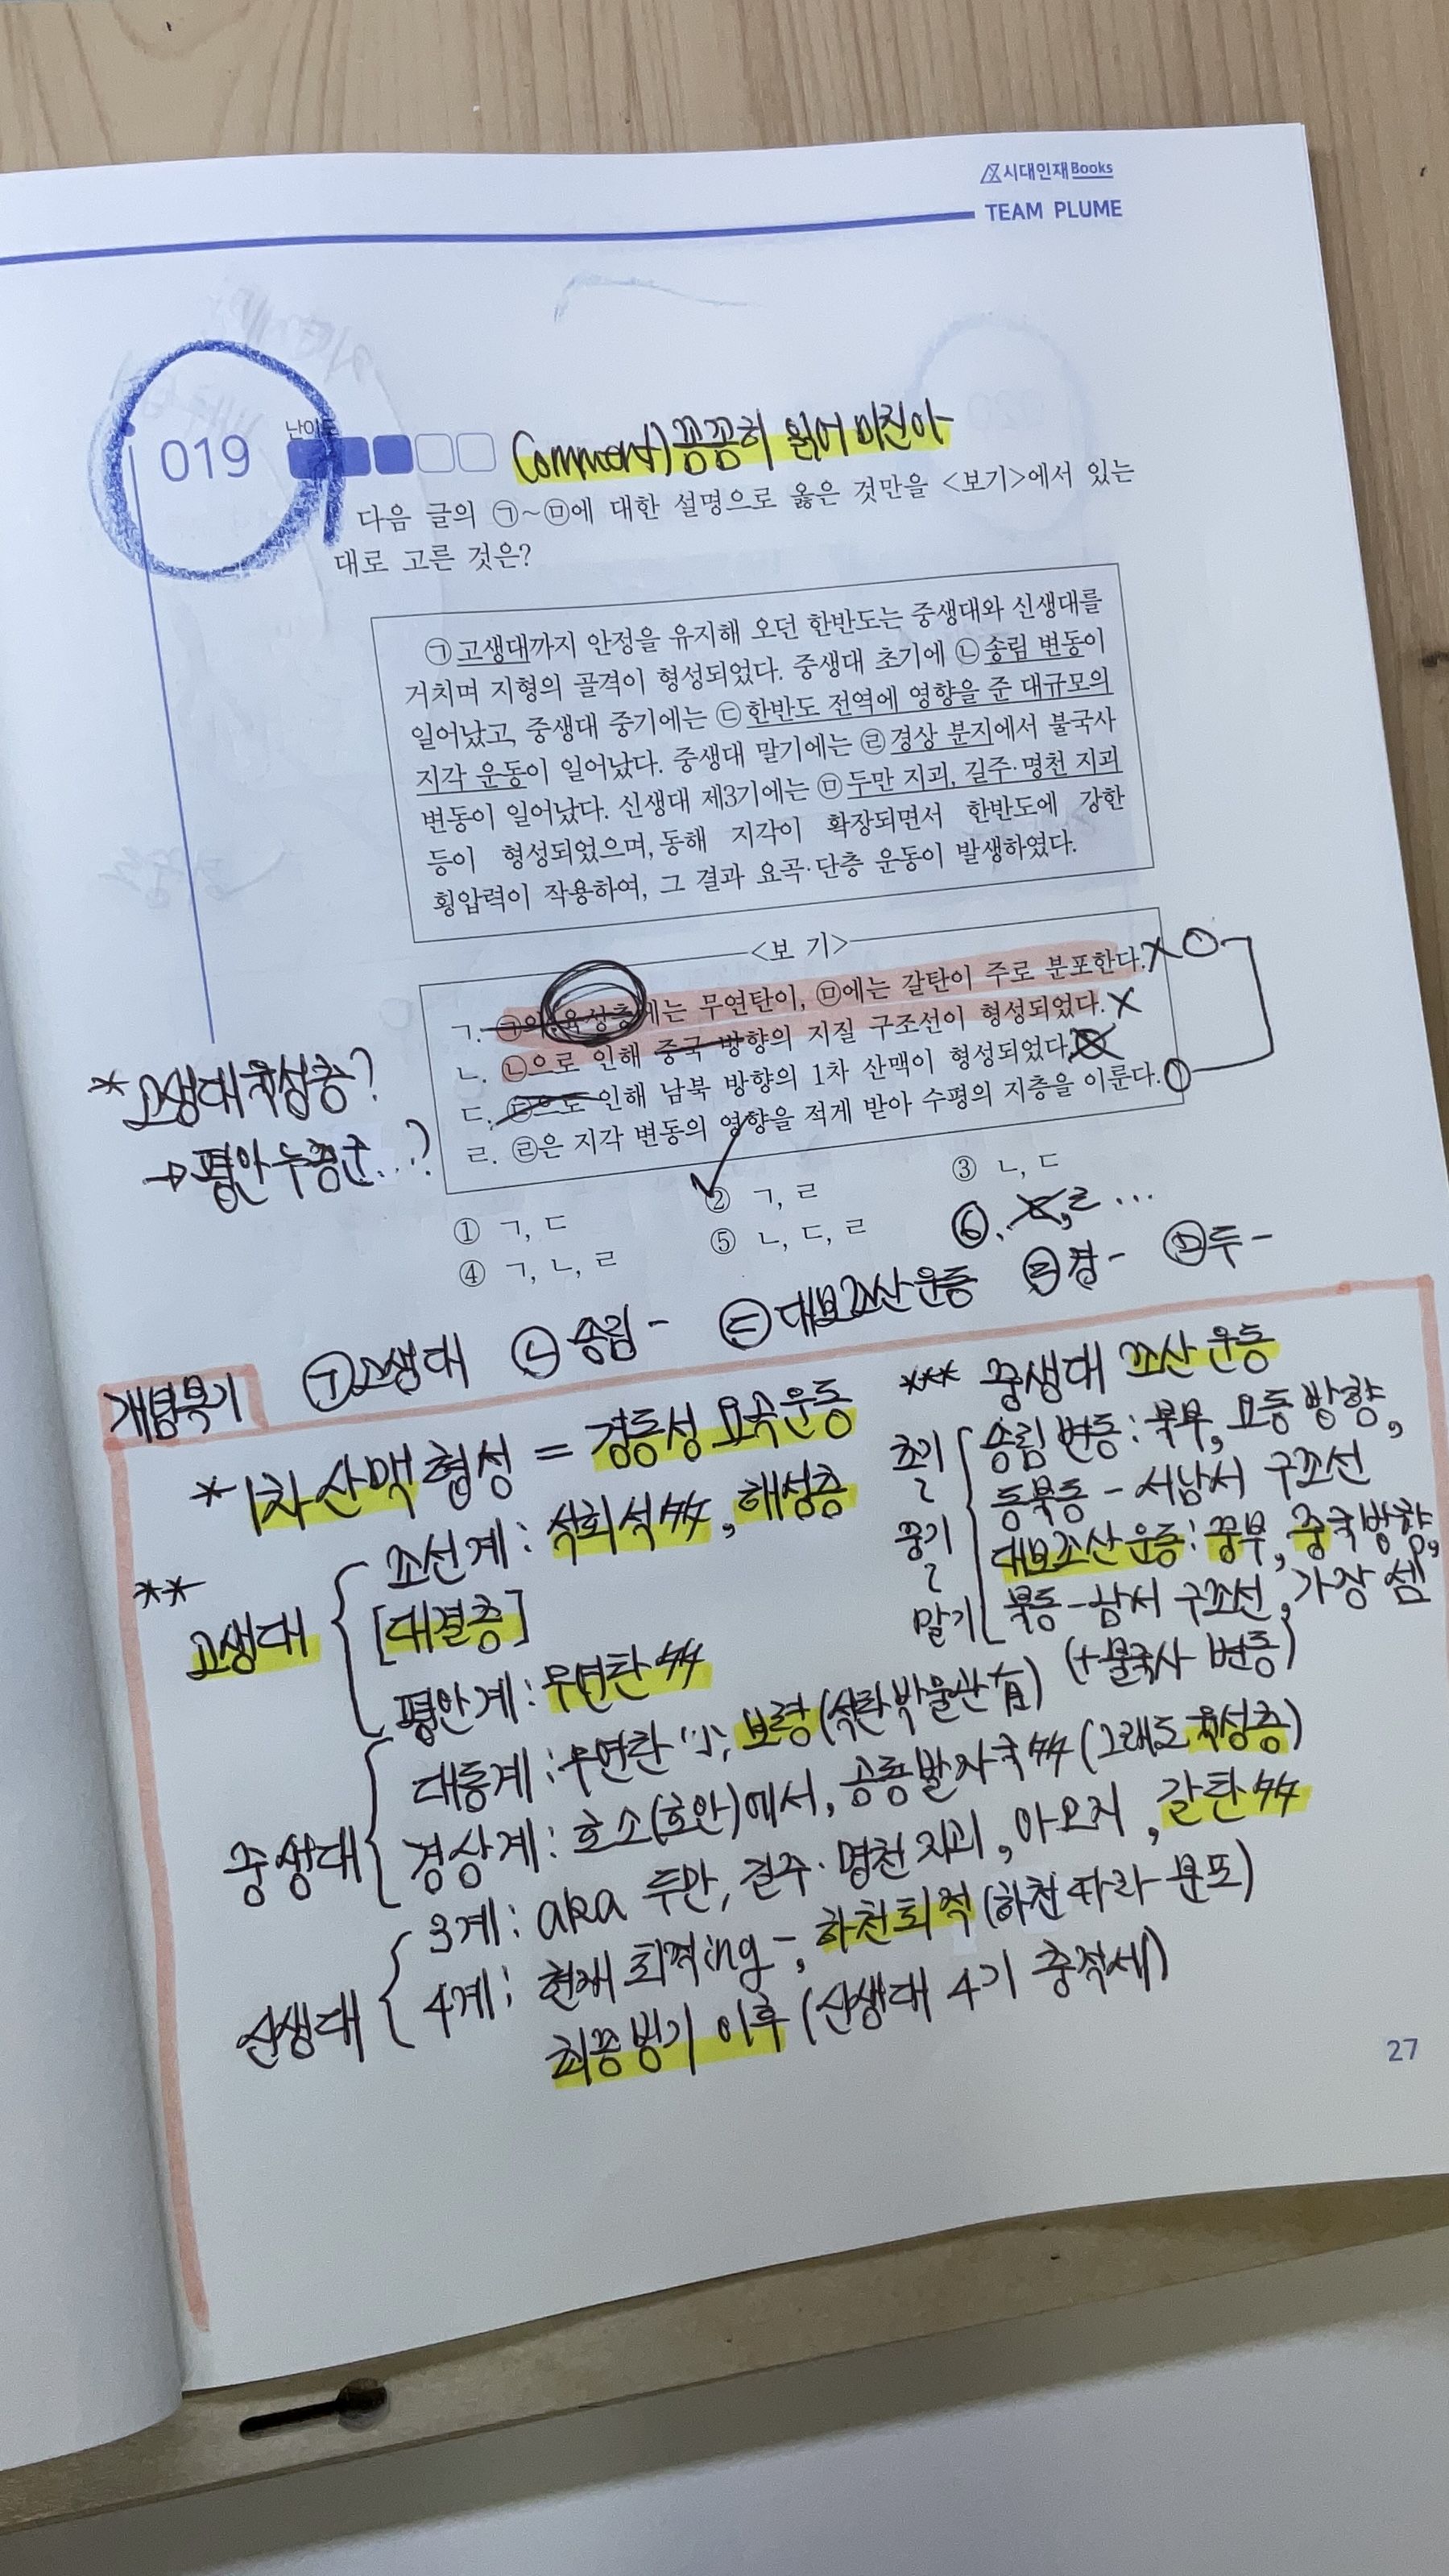 시대인재Books
TEAM PLUME
019
난이도
Comment) 꼼꼼히 읽어 미친아
다음 글의 ㉠~㉤에 대한 설명으로 옳은 것만을 <보기>에서 있는
대로 고른 것은?
㉠고생대까지 안정을 유지해 오던 한반도는 중생대와 신생대를
거치며 지형의 골격이 형성되었다. 중생대 초기에 ㉡송림 변동이
일어났고, 중생대 중기에는 ㉢한반도 전역에 영향을 준 대규모의
지각 운동이 일어났다. 중생대 말기에는 ㉣경상 분지에서 불국사
변동이 일어났다. 신생대 제3기에는 ㉤두만 지괴, 길주·명천 지괴
등이 형성되었으며, 동해 지각이 확장되면서 한반도에 강한
횡압력이 작용하여, 그 결과 요곡·단층 운동이 발생하였다.
<보 기>
ㄱ. ㉠의 육성층에는 무연탄이, ㉤에는 갈탄이 주로 분포한다. X O
ㄴ. ㉡으로 인해 중국 방향의 지질 구조선이 형성되었다. X
ㄷ. ㉢으로 인해 남북 방향의 1차 산맥이 형성되었다.
ㄹ. ㉣은 지각 변동의 영향을 적게 받아 수평의 지층을 이룬다. O
* 고생대 육성층?
→ 평안 누층군...?
① ㄱ, ㄷ
② ㄱ, ㄹ
③ ㄴ, ㄷ
④ ㄱ, ㄴ, ㄹ
⑤ ㄴ, ㄷ, ㄹ
⑥ ㄹ ...
㉠고생대 ㉡송림- ㉢대보조산운동 ㉣경- ㉤두-
개념묶기
*1차 산맥 형성 = 경동성 요곡운동
**
고생대
조선계 : 석회석 多多, 해성층
[대결층]
평안계 : 무연탄 多多
중생대
대동계 : 무연탄 小, 보령(석탄박물관 有)
경상계 : 호소(호안)에서, 공룡발자국 多多 (그래도 육성층)
신생대
3계 : aka 두만, 길주·명천 지괴, 아오지, 갈탄 多多
4계 : 현재 퇴적ing-, 하천퇴적 (하천 따라 분포)
최종빙기 이후 (신생대 4기 충적세)
*** 중생대 조산운동
초기
~
중기
~
말기
송림 변동 : 북부, 요동 방향,
동북동 - 서남서 구조선
대보조산운동 : 중부, 중국방향,
북동-남서 구조선, 가장 셈
(+불국사 변동)
27